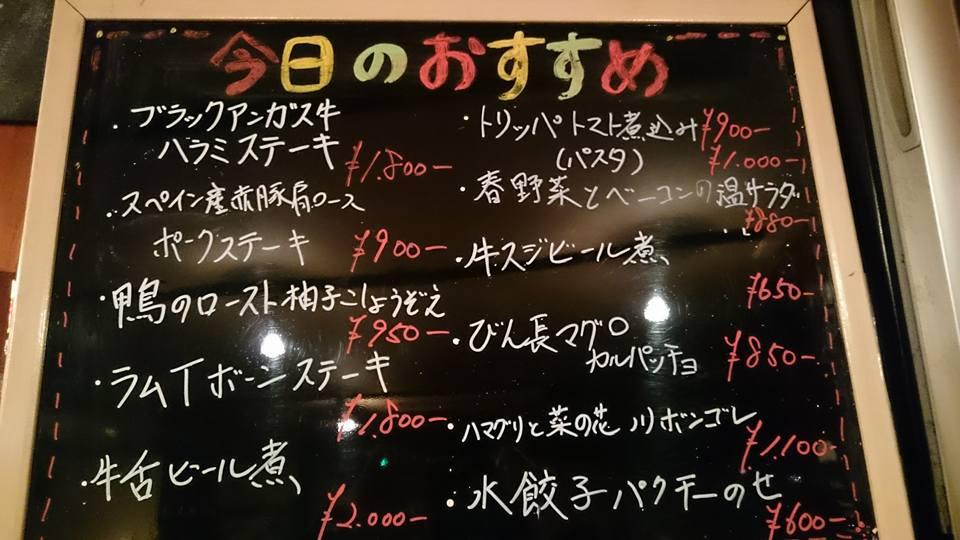 今日のおすすめ
・ブラックアンガス牛
ハラミステーキ ¥1.800-
・スペイン産赤豚肩ロース
ポークステーキ ¥900-
・鴨のロースト柚子こしょうぞえ
¥950-
・ラムTボーンステーキ
¥1.800-
・牛舌ビール煮
¥2.000-
・トリッパトマト煮込み ¥900-
(パスタ) ¥1.000-
・春野菜とベーコンの温サラダ
¥880-
・牛スジビール煮
¥650-
・びん長マグロ
カルパッチョ ¥850-
・ハマグリと菜の花ノリボンゴレ
¥1.100-
・水餃子パクチーのせ
¥600-